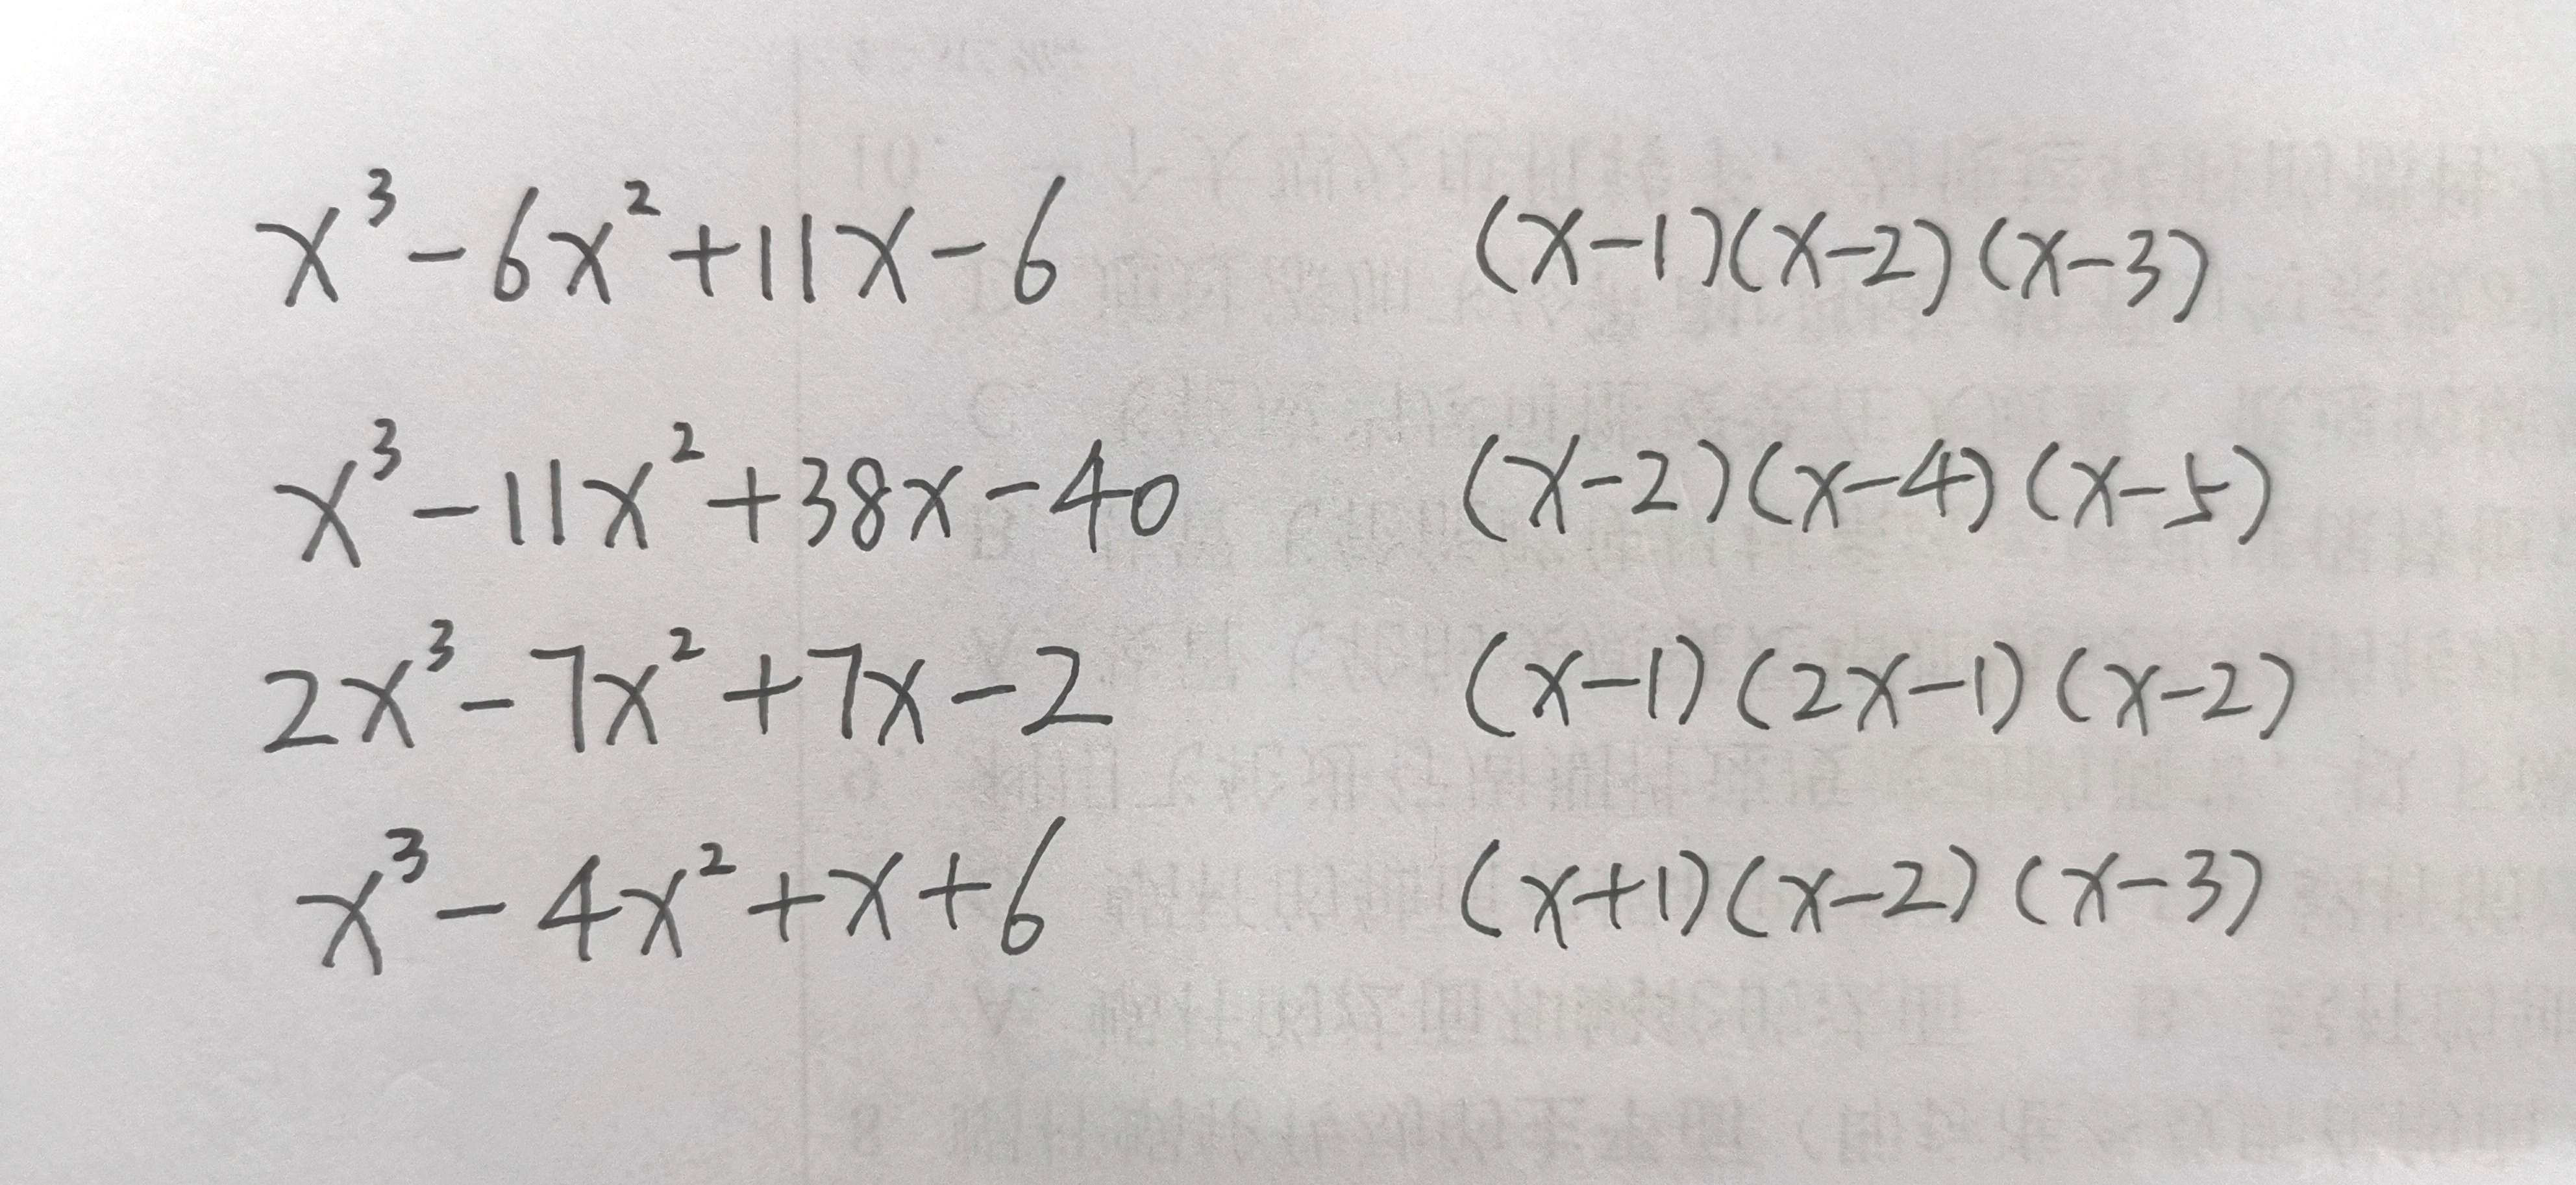 x³-6x²+11x-6 (x-1)(x-2)(x-3)
x³-11x²+38x-40 (x-2)(x-4)(x-5)
2x³-7x²+7x-2 (x-1)(2x-1)(x-2)
x³-4x²+x+6 (x+1)(x-2)(x-3)